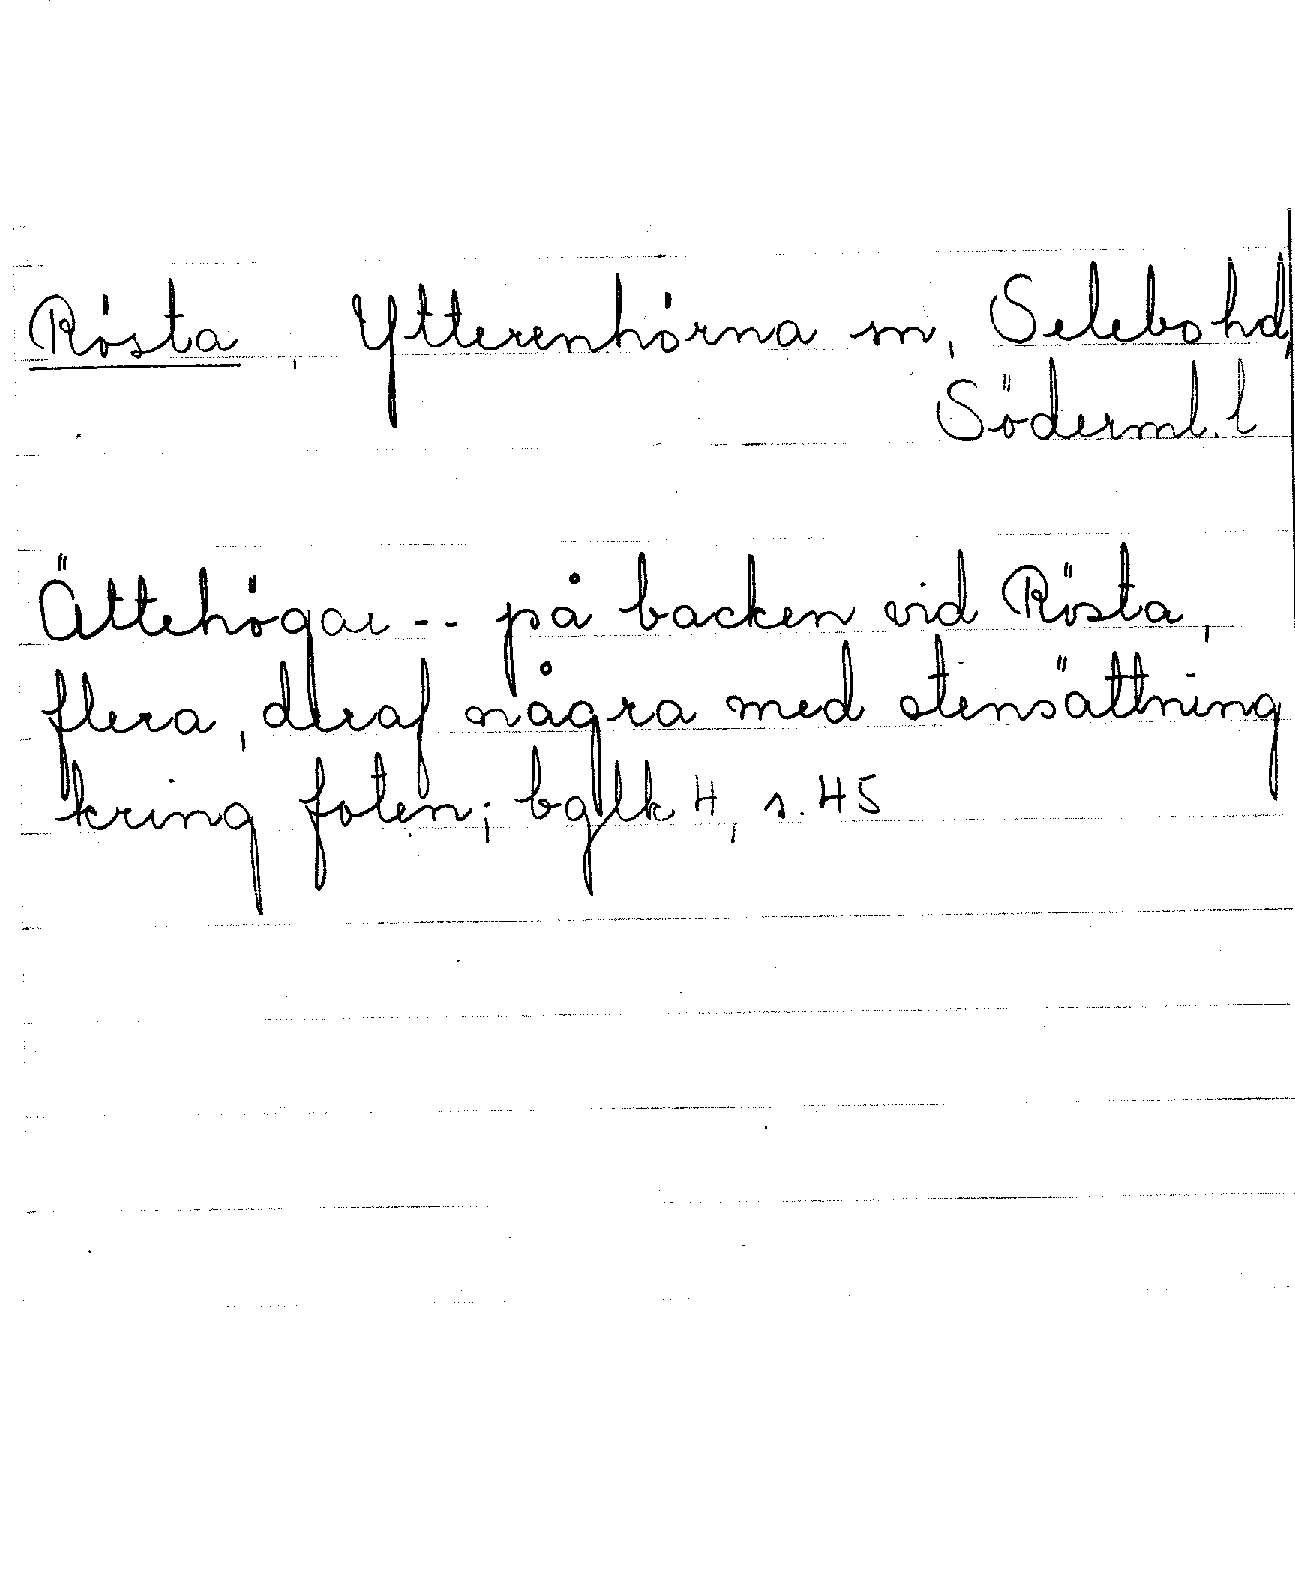 Rösta, Ytterenhörna sn, Selebo hd,
Söderml. l
Ättehögar -- på backen vid Rösta,
flera, deraf några med stensättning
kring foten; bglk 4, s. 45